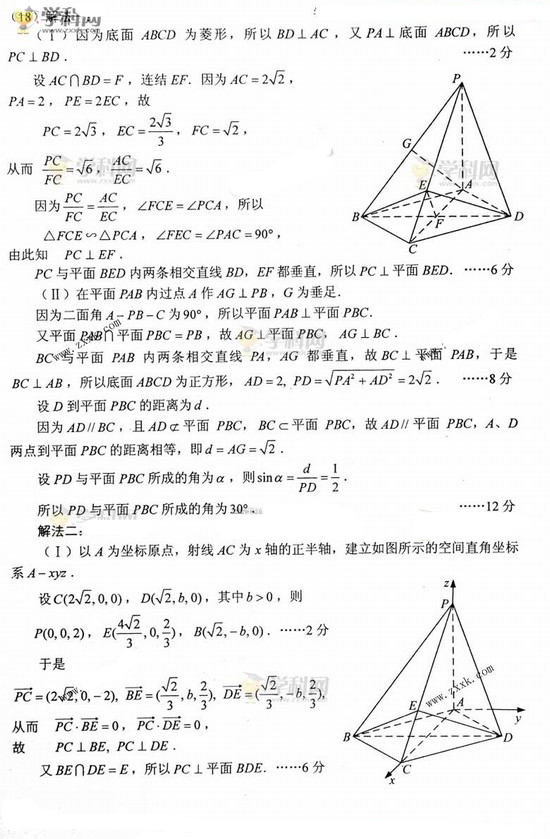 (18) 解法一
(Ⅰ)因为底面 ABCD 为菱形，所以 BD⊥AC，又 PA⊥底面 ABCD，所以
PC⊥BD． ……2分
设 AC∩BD=F，连结 EF．因为 AC=2√2，
PA=2，PE=2EC，故
PC=2√3，EC=2√3/3，FC=√2，
从而 PC/FC=√6，AC/EC=√6．
因为 PC/FC=AC/EC，∠FCE=∠PCA，所以
△FCE∽△PCA，∠FEC=∠PAC=90°，
由此知 PC⊥EF．
PC 与平面 BED 内两条相交直线 BD，EF 都垂直，所以 PC⊥平面 BED．……6分
(Ⅱ)在平面 PAB 内过点 A 作 AG⊥PB，G 为垂足．
因为二面角 A−PB−C 为 90°，所以平面 PAB⊥平面 PBC．
又平面 PAB∩平面 PBC=PB，故 AG⊥平面 PBC，AG⊥BC．
BC 与平面 PAB 内两条相交直线 PA，AG 都垂直，故 BC⊥平面 PAB，于是
BC⊥AB，所以底面 ABCD 为正方形，AD=2，PD=√(PA²+AD²)=2√2． ……8分
设 D 到平面 PBC 的距离为 d．
因为 AD//BC，且 AD⊄平面 PBC，BC⊂平面 PBC，故 AD//平面 PBC，A、D
两点到平面 PBC 的距离相等，即 d=AG=√2．
设 PD 与平面 PBC 所成的角为 α，则 sinα=d/PD=1/2．
所以 PD 与平面 PBC 所成的角为 30°． ……12分
解法二：
(Ⅰ)以 A 为坐标原点，射线 AC 为 x 轴的正半轴，建立如图所示的空间直角坐标
系 A−xyz．
设 C(2√2,0,0)，D(√2,b,0)，其中 b>0，则
P(0,0,2)，E(4√2/3,0,2/3)，B(√2,−b,0)．……2分
于是
PC→=(2√2,0,−2)，BE→=(√2/3,b,2/3)，DE→=(√2/3,−b,2/3)，
从而 PC→·BE→=0，PC→·DE→=0，
故 PC⊥BE，PC⊥DE．
又 BE∩DE=E，所以 PC⊥平面 BDE．……6分
P
G
E
A
B
F
D
C
z
P
E
A
y
B
D
C
x
学科网
www.zxxk.com